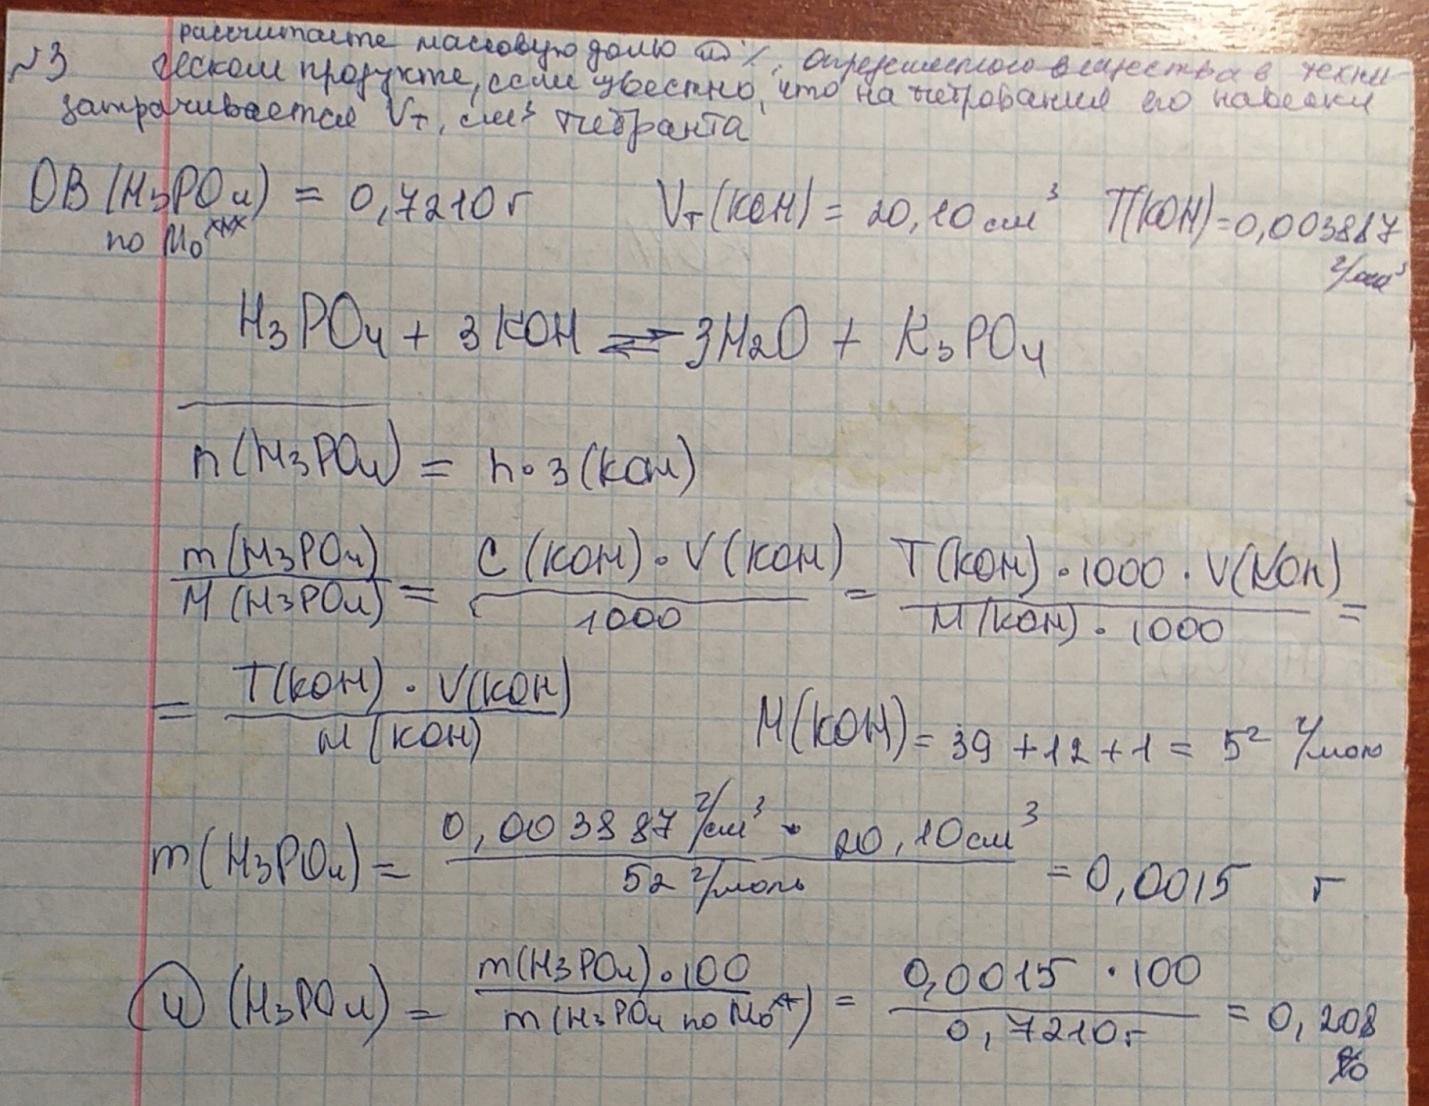 рассчитайте массовую долю ω, %, определяемого вещества в техни-
№3 ческом продукте, если известно, что на титрование его навески
затрачивается Vт, см³ титранта
ОВ (H₃PO₄) = 0,7210 г Vт (KOH) = 20,10 см³ T(KOH) = 0,003887
по Mo*** г/см³
H₃PO₄ + 3 KOH ⇄ 3H₂O + K₃PO₄
n (H₃PO₄) = n·3 (KOH)
m (H₃PO₄) / M (H₃PO₄) = C (KOH) · V (KOH) / 1000 = T(KOH) · 1000 · V(KOH) / M(KOH) · 1000 =
= T(KOH) · V(KOH) / M (KOH) M(KOH) = 39 + 12 + 1 = 52 г/моль
m (H₃PO₄) = 0,003887 г/см³ · 20,10 см³ / 52 г/моль = 0,0015 г
ω (H₃PO₄) = m(H₃PO₄) · 100 / m(H₃PO₄ по Mo**) = 0,0015 · 100 / 0,7210 г = 0,208
%